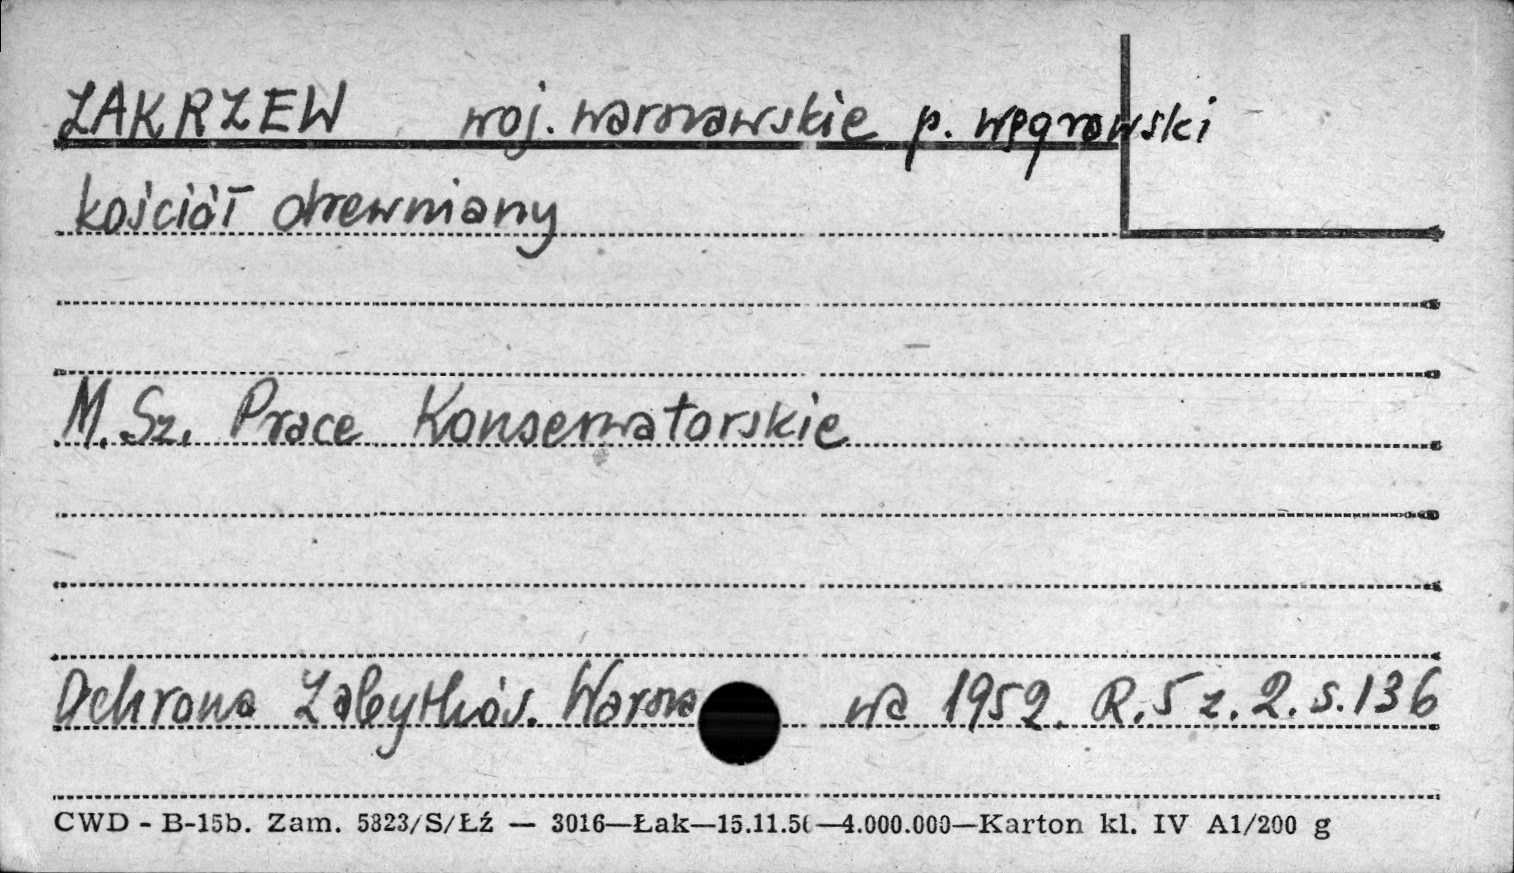 ZAKRZEW woj. warszawskie p. węgrowski
kościół drewniany
M. Sz. Prace Konserwatorskie
Ochrona Zabytków. Warsza wa 1952. R. 5 z. 2. s. 136
CWD - B-15b. Zam. 5823/S/Łź — 3016—Łak—15.11.56—4.000.000—Karton kl. IV A1/200 g